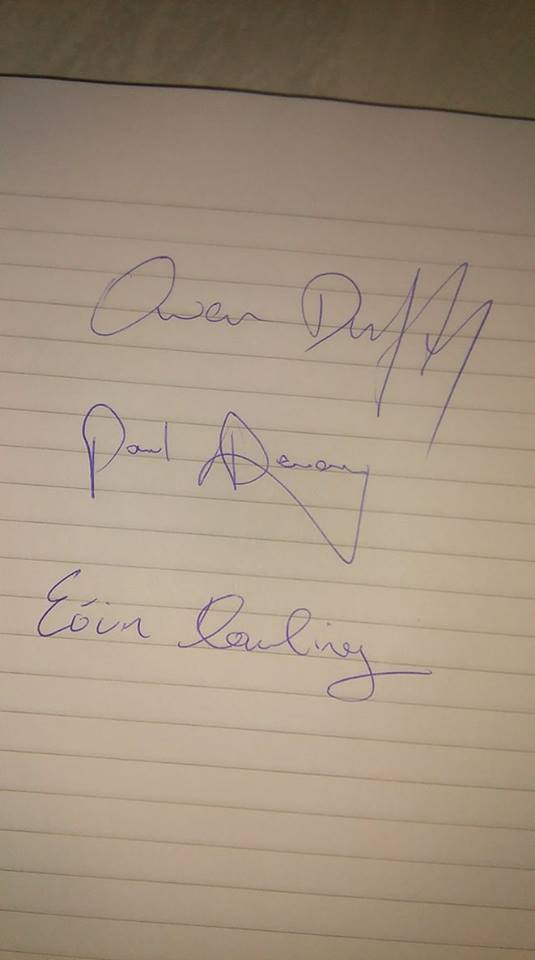 Owen Duffy
Paul Devany
Eóin Cowling